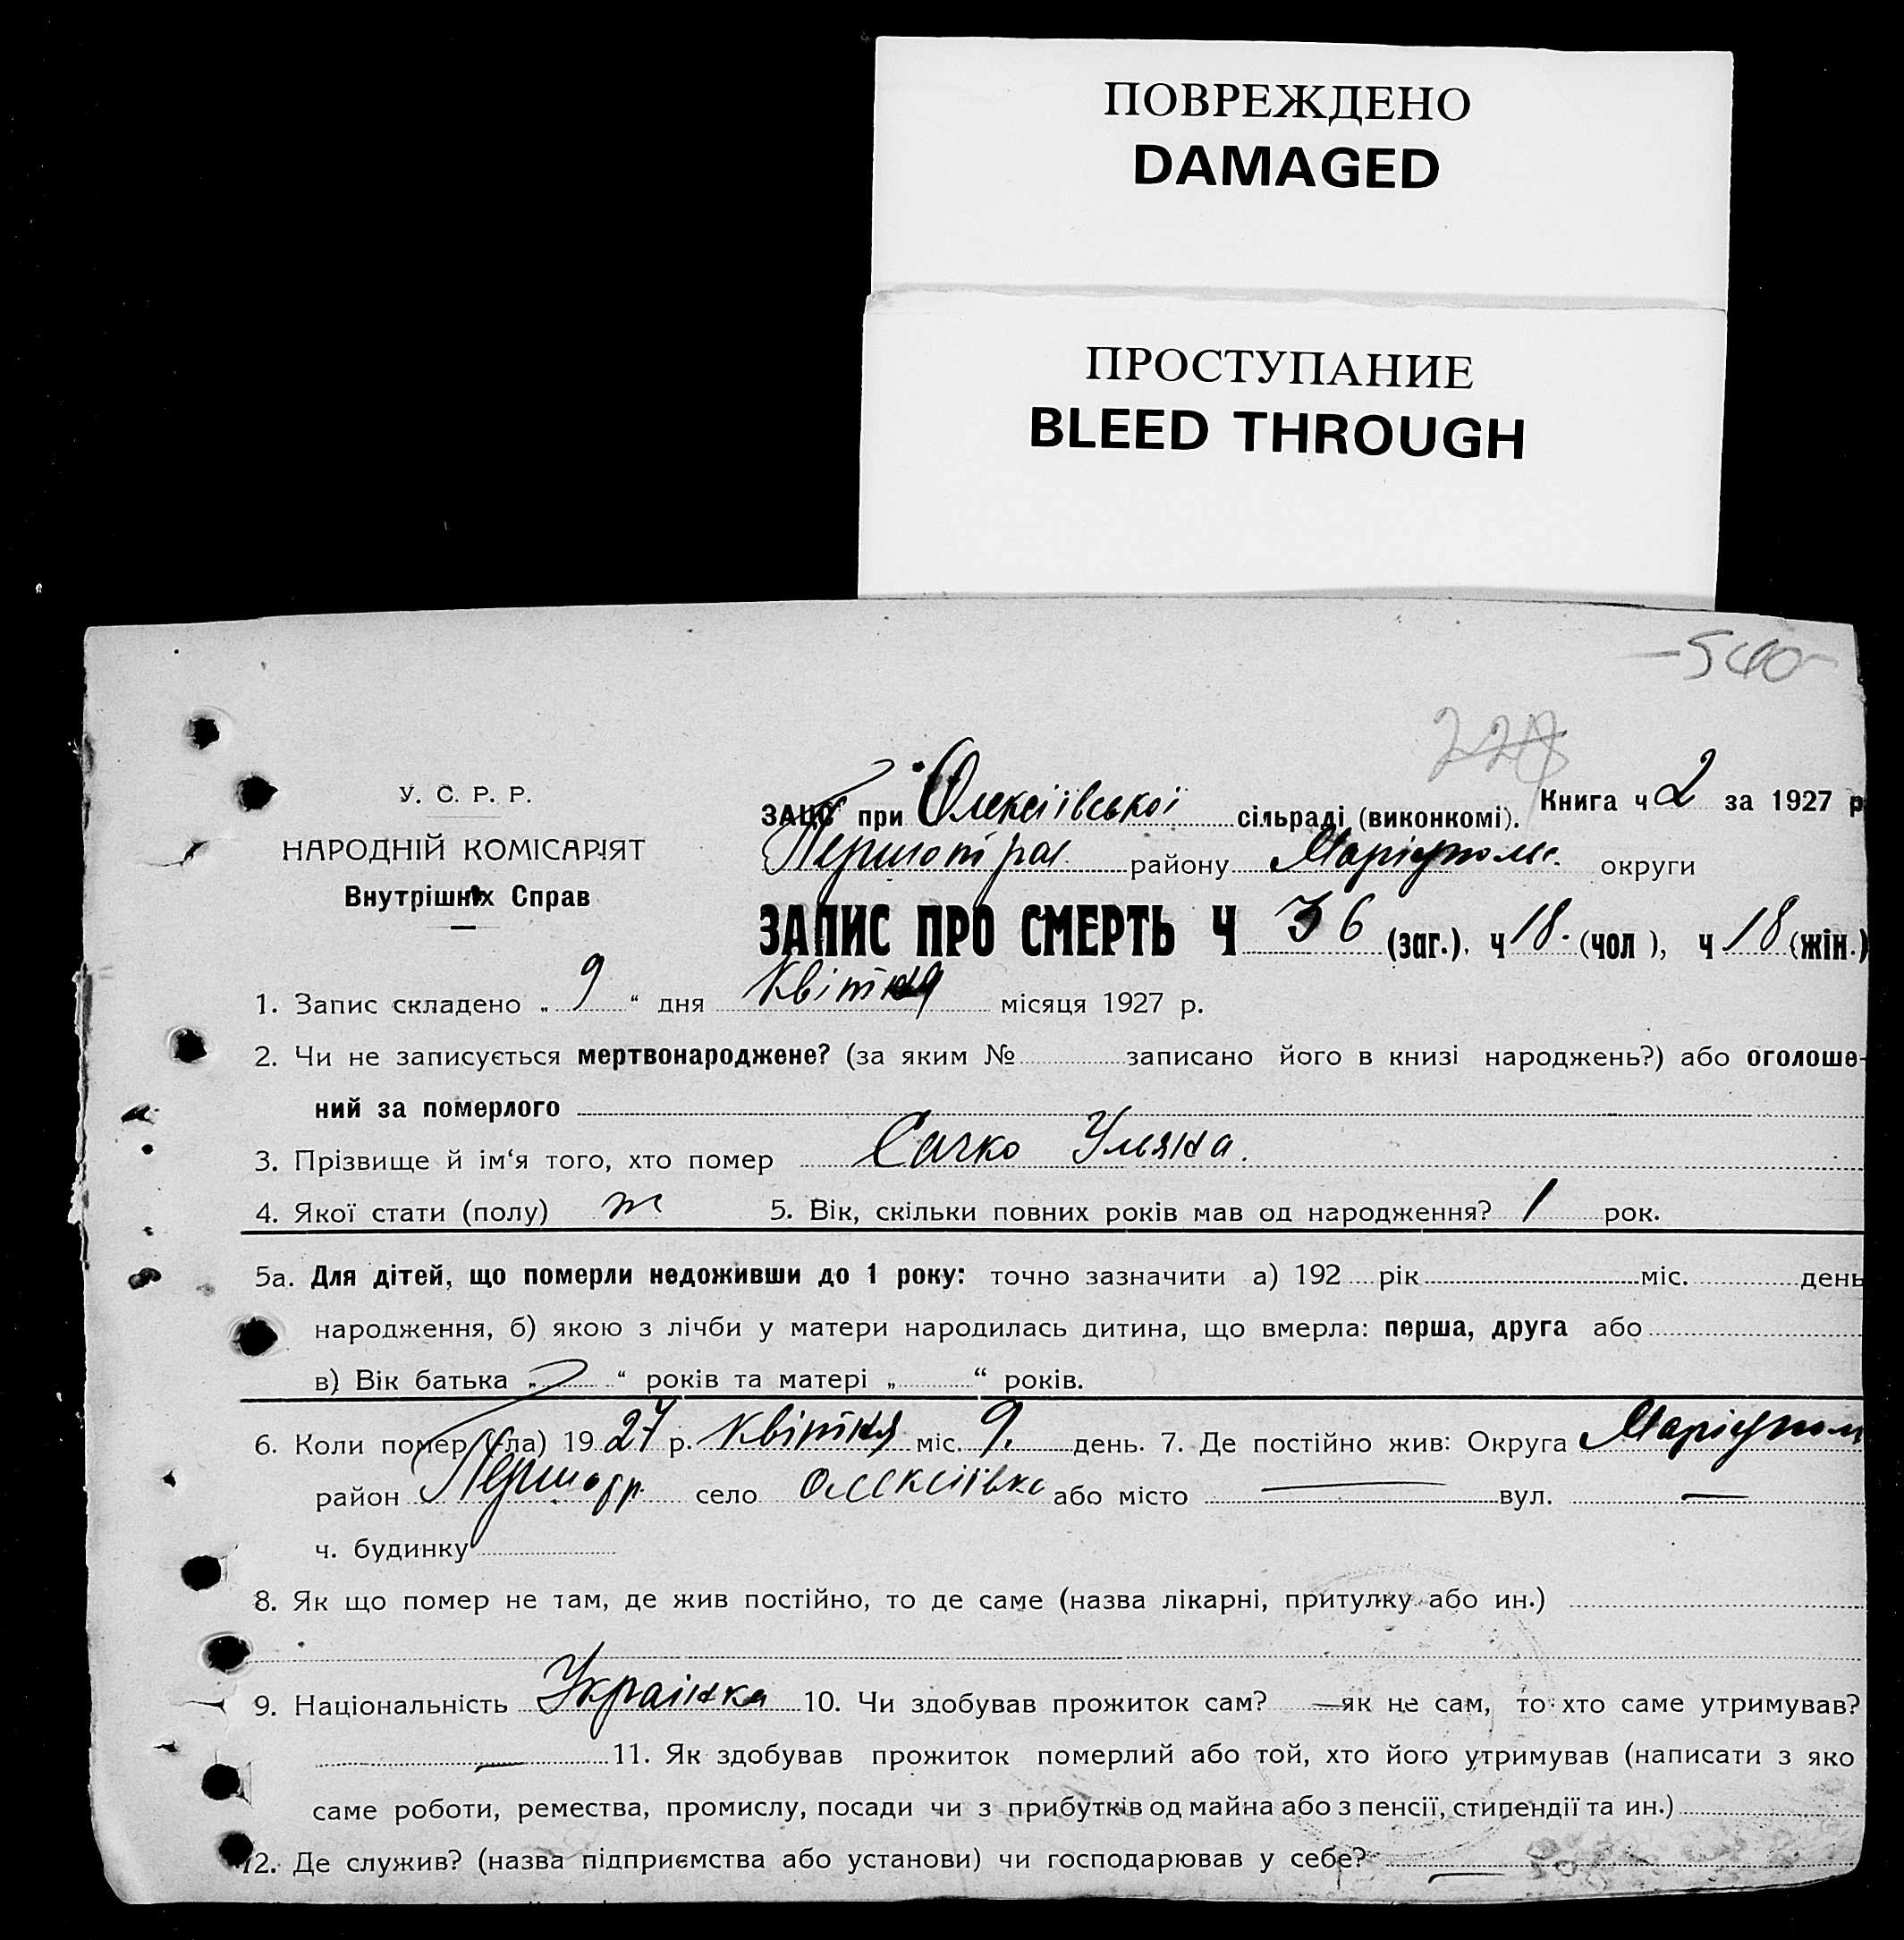 ПОВРЕЖДЕНО
DAMAGED
ПРОСТУПАНИЕ
BLEED THROUGH
-540-
228
У. С. Р. Р.
НАРОДНІЙ КОМІСАРІЯТ
Внутрішніх Справ
ЗАЦС при Олексіївської сільраді (виконкомі). Книга ч 2 за 1927 р
району Маріуполь. округи
ЗАПИС ПРО СМЕРТЬ Ч 36 (заг.), ч 18. (чол ), ч 18 (жін.)
1. Запис складено „ 9 “ дня Квітня місяця 1927 р.
2. Чи не записується мертвонароджене? (за яким № записано його в книзі народжень?) або оголоше-
ний за померлого
3. Прізвище й ім‘я того, хто помер Сачко Уляна.
4. Якої стати (полу) ж 5. Вік, скільки повних років мав од народження? 1 рок.
5а. Для дітей, що померли недоживши до 1 року: точно зазначити а) 192 рік міс. день
народження, б) якою з лічби у матери народилась дитина, що вмерла: перша, друга або
в) Вік батька „ “ років та матері „ “ років.
6. Коли помер (-ла) 1927 р. Квітня міс. 9. день. 7. Де постійно жив: Округа Маріупол
район село Олексіївка або місто — вул. —
ч. будинку
8. Як що помер не там, де жив постійно, то де саме (назва лікарні, притулку або ин.)
9. Національність Українка 10. Чи здобував прожиток сам? — як не сам, то хто саме утримував?
— 11. Як здобував прожиток померлий або той, хто його утримував (написати з яко
саме роботи, ремества, промислу, посади чи з прибутків од майна або з пенсії, стипендії та ин.)
12. Де служив? (назва підприємства або установи) чи господарював у себе? —